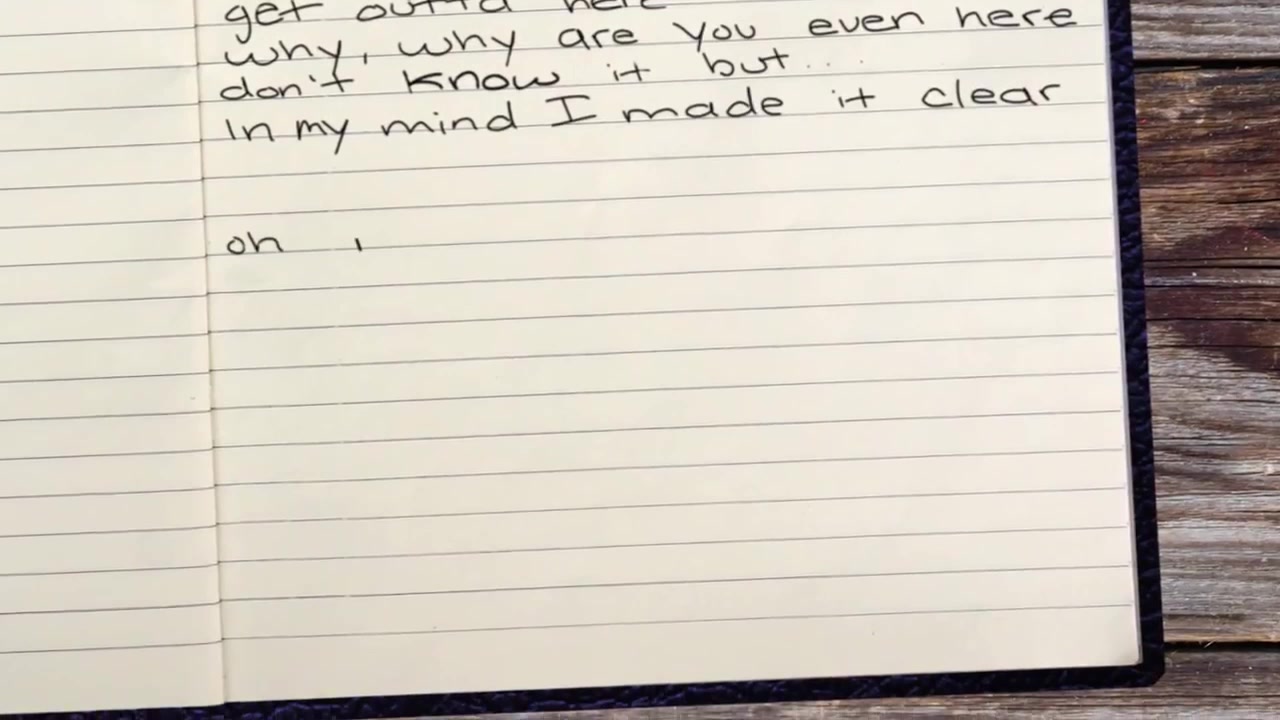 get outta here
why, why are you even here
don't know it but...
In my mind I made it clear
oh